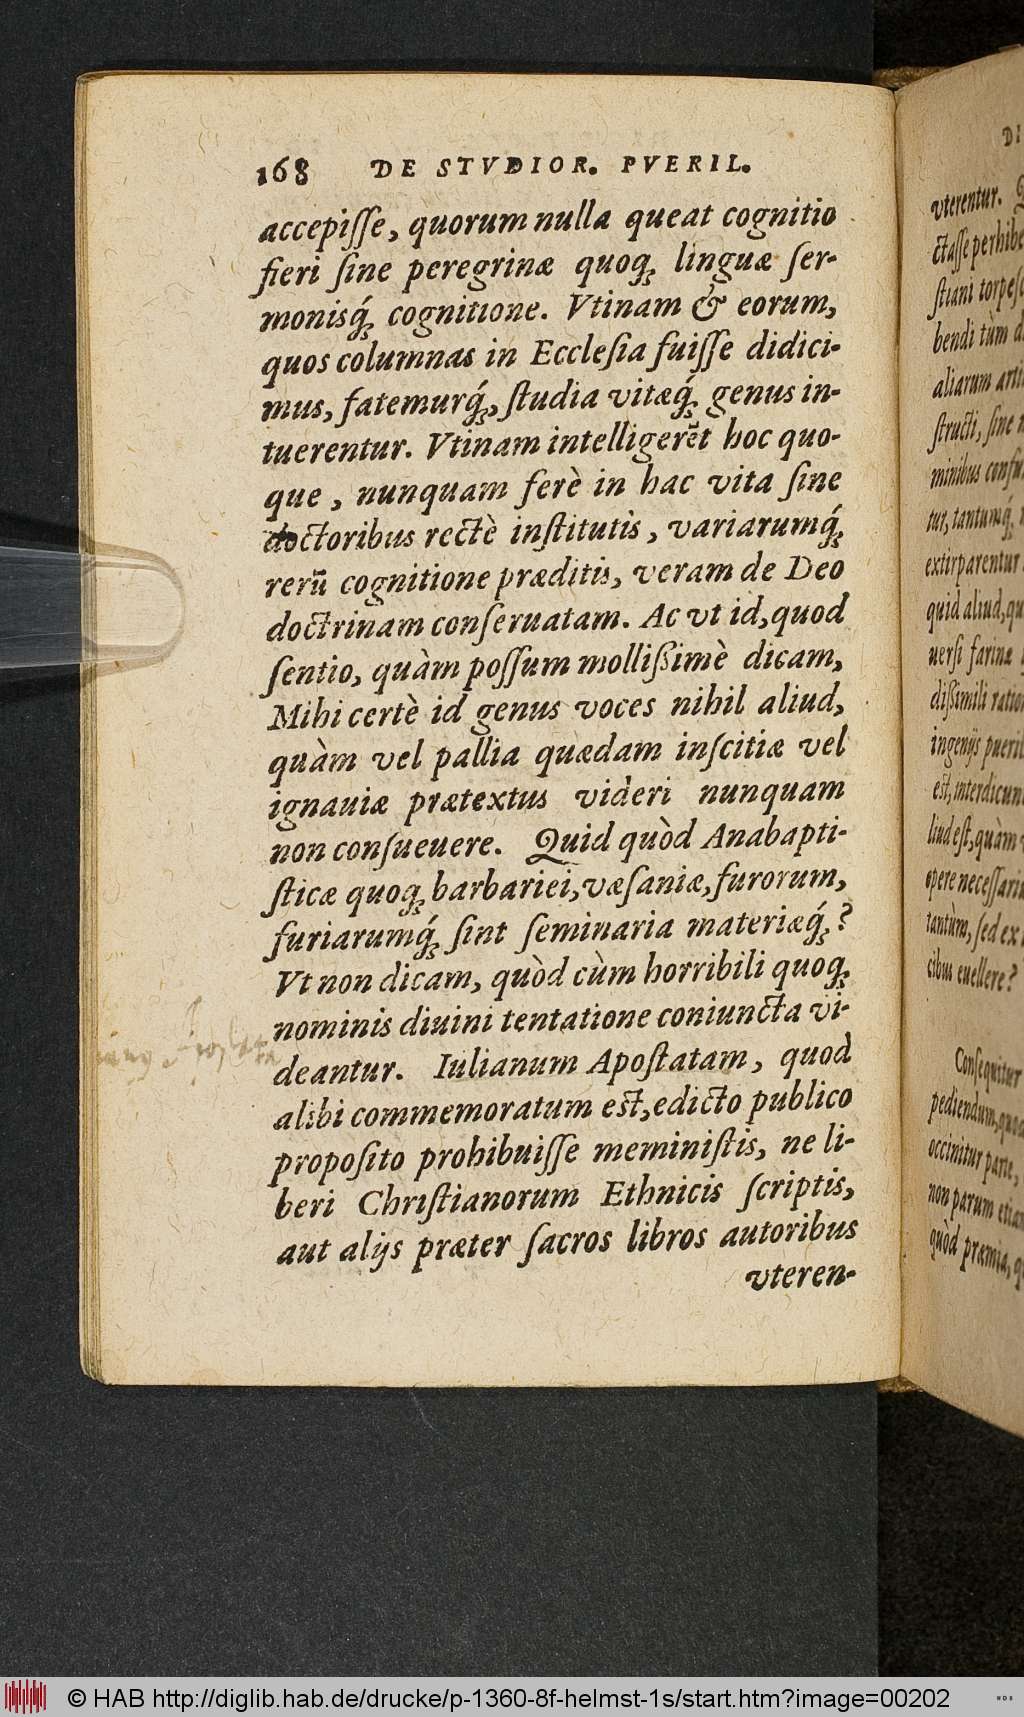 168 DE STVDIOR. PVERIL.
accepiſſe, quorum nulla queat cognitio
fieri ſine peregrinæ quoq; linguæ ſer-
monisq́; cognitione. Vtinam & eorum,
quos columnas in Eccleſia fuiſſe didici-
mus, fatemurq́;, ſtudia vitæq́; genus in-
tuerentur. Vtinam intelligerẽt hoc quo-
que, nunquam ferè in hac vita ſine
doctoribus rectè inſtitutis, variarumq́;
rerũ cognitione præditis, veram de Deo
doctrinam conſeruatam. Ac vt id, quod
ſentio, quàm poſſum mollißimè dicam,
Mihi certè id genus voces nihil aliud,
quàm vel pallia quædam inſcitiæ vel
ignauiæ prætextus videri nunquam
non conſueuere. Quid quòd Anabapti-
ſticæ quoq; barbariei, væſaniæ, furorum,
furiarumq́; ſint ſeminaria materiæq́;?
Vt non dicam, quòd cùm horribili quoq;
nominis diuini tentatione coniuncta vi-
deantur. Iulianum Apoſtatam, quod
alibi commemoratum eſt, edicto publico
propoſito prohibuiſſe meminiſtis, ne li-
beri Chriſtianorum Ethnicis ſcriptis,
aut alijs præter ſacros libros autoribus
vteren-
DI
vterentur.
ctaſſe perhibe
ſtiani torpeſc
bendi tùm
aliarum arti
ſtructi, ſine
minibus conſu
tur, tantumq́;
extirparentur
quid aliud, qu
uerſi farinæ
dißimili ratio
ingenijs pueril
eſt, interdicun
liud eſt, quàm
opere neceſſaria
tantùm, ſed ex
cibus euellere?
Conſequitur
pediendum, quod
occinitur parte,
non parum etiam
quòd præmia, q
© HAB http://diglib.hab.de/drucke/p-1360-8f-helmst-1s/start.htm?image=00202